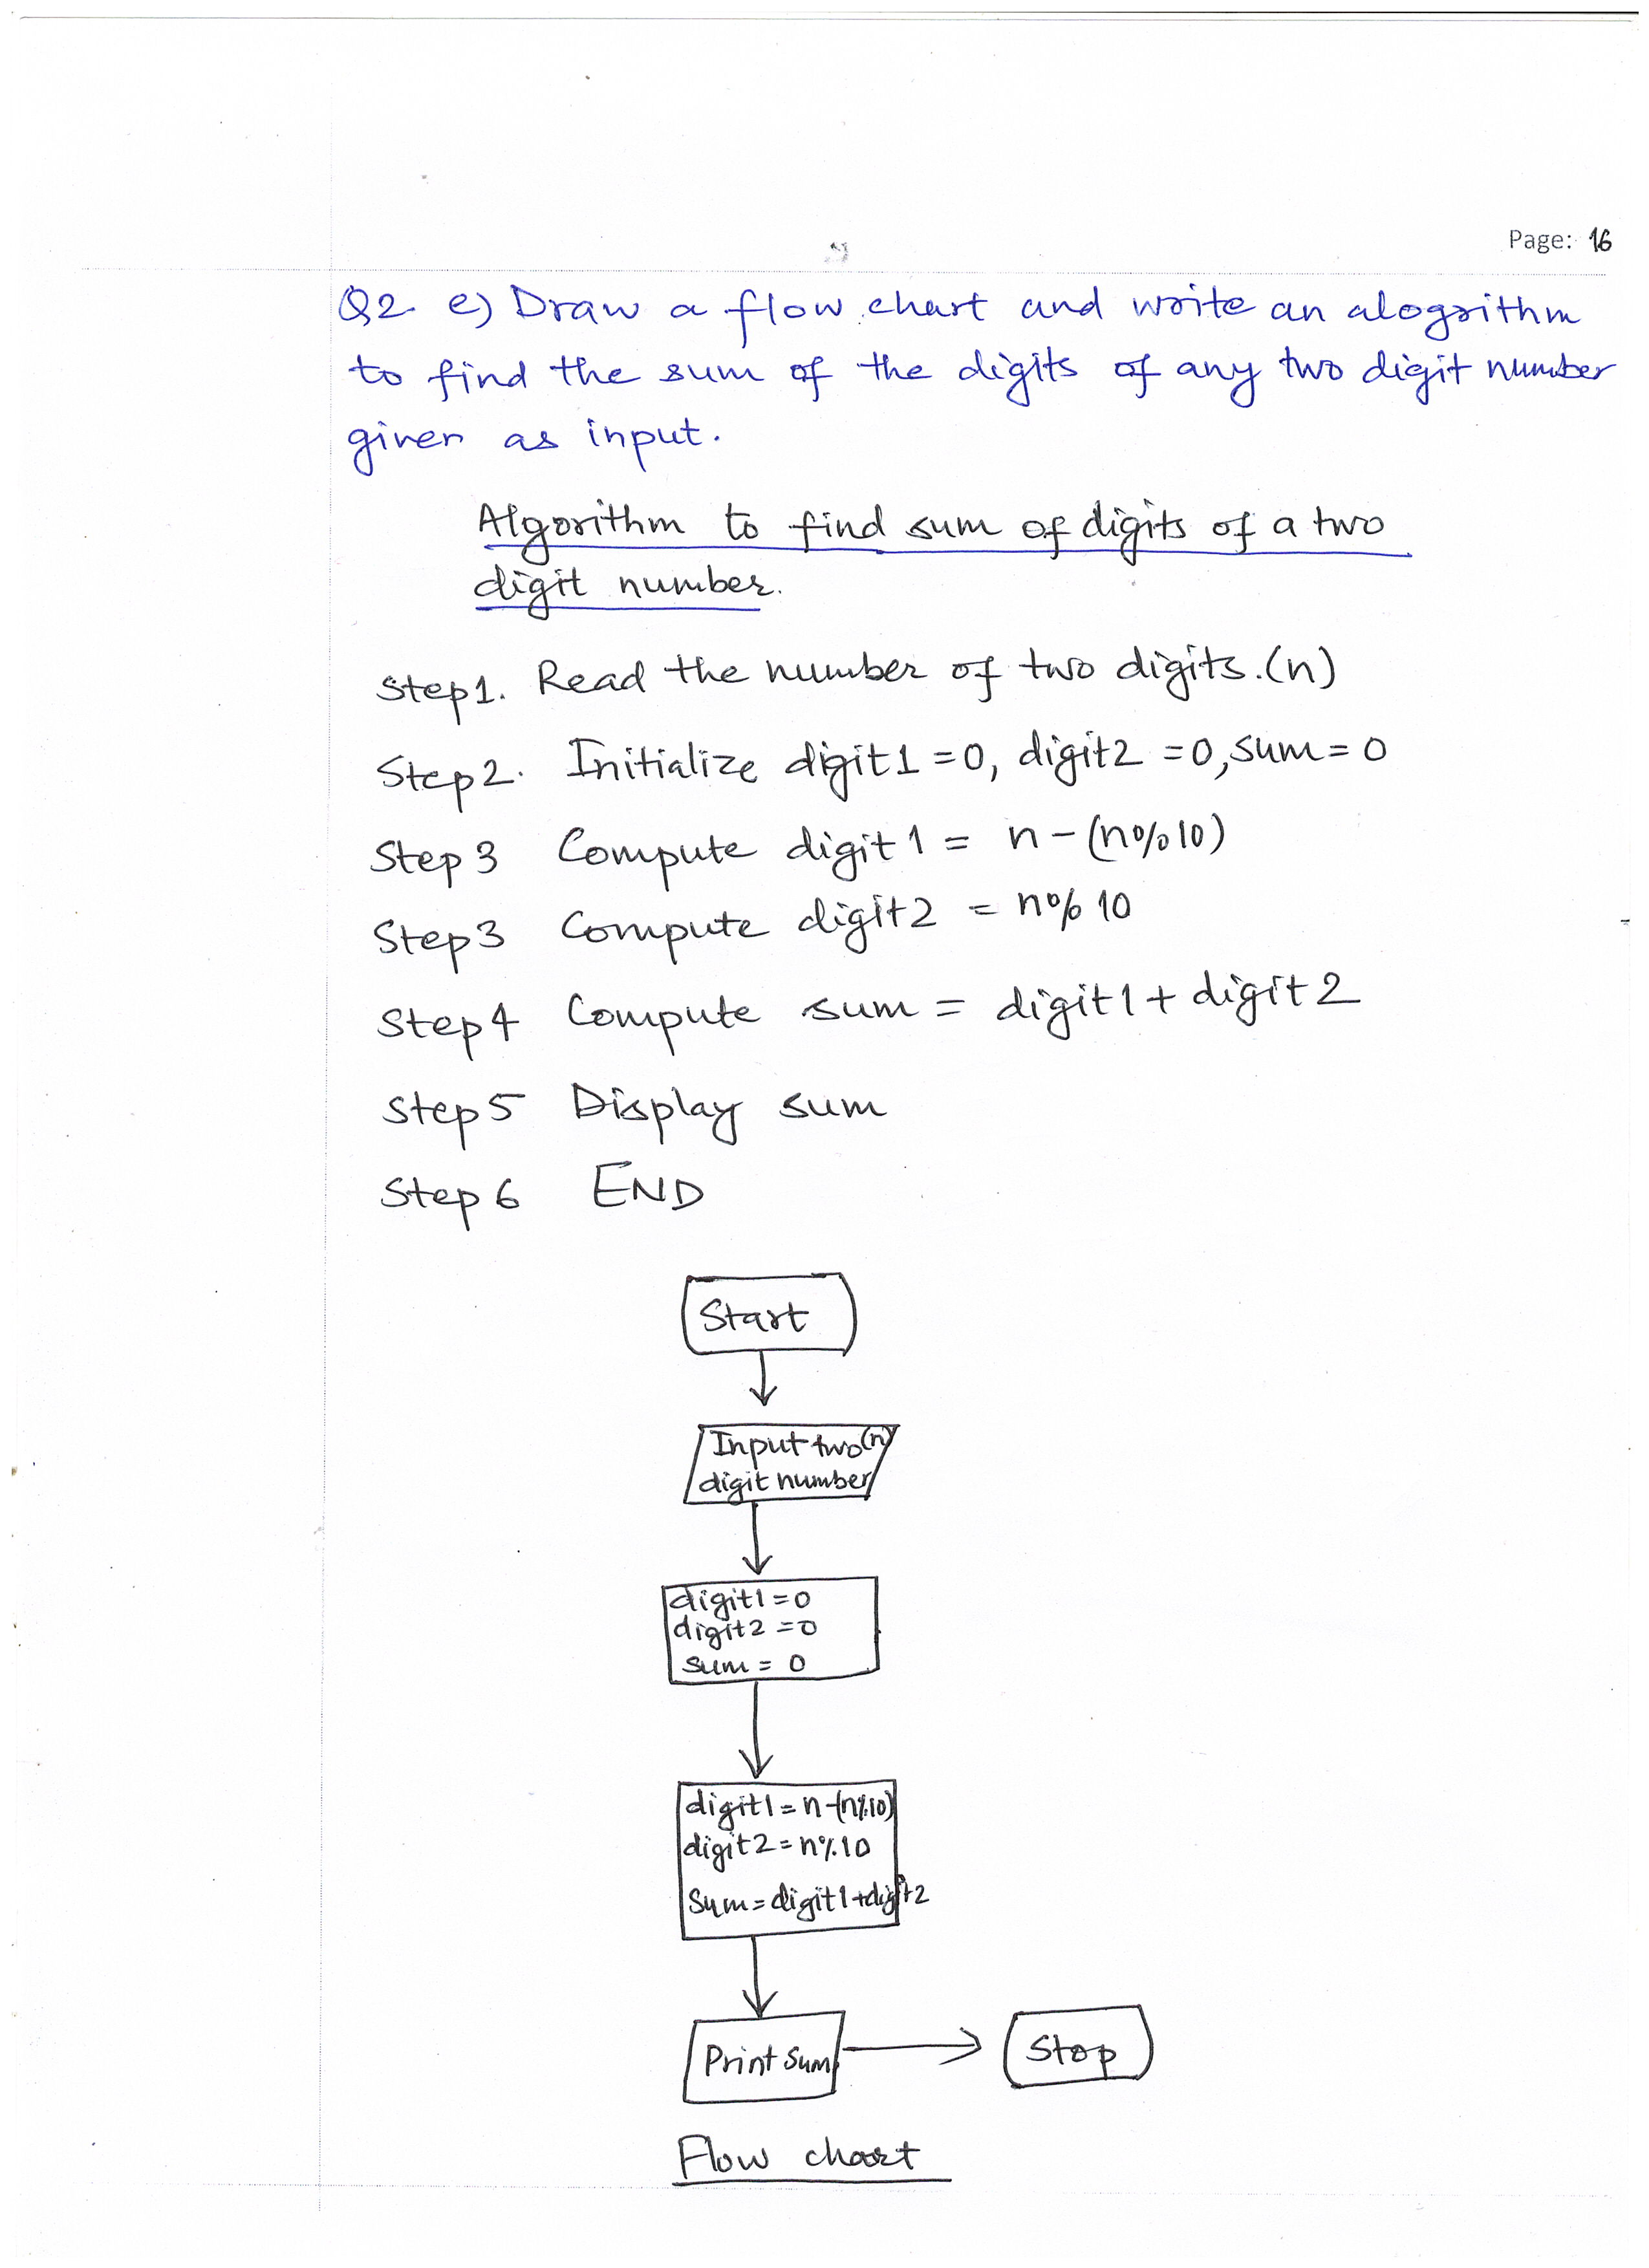 Page: 16
Q2 e) Draw a flow chart and write an alogrithm
to find the sum of the digits of any two digit number
given as input.
Algorithm to find sum of digits of a two
digit number.
Step1. Read the number of two digits.(n)
Step2. Initialize digit1 =0, digit2 =0, sum=0
Step 3 Compute digit1 = n-(n%10)
Step3 Compute digit2 = n%10
Step4 Compute sum = digit1+digit2
Step5 Display sum
Step 6 END
Start
Input two (n)
digit number
digit1=0
digit2=0
sum=0
digit1=n-(n%10)
digit2=n%10
Sum=digit1+digit2
Print Sum
Stop
Flow chart